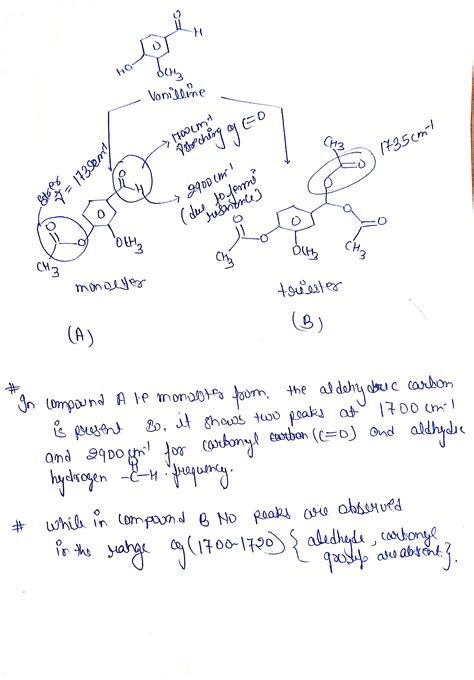 O
H
HO
OCH3
Vanilline
1700 cm-1
stretching of C=O
CH3
1735 cm-1
Ester
ν̄ = 1730cm-1
O
H
2900 cm-1
(due to fermi
resonance)
O
O
O
O
O
O
OCH3
CH3
O
O
CH3
OCH3
CH3
monoester
triester
(A)
(B)
# In compound A i.e monoester form. the aldehydic carbon
is present so, it shows two peaks at 1700 cm-1
and 2900 cm-1 for carbonyl carbon (C=O) and aldhydic
hydrogen -C-H frequency.
O
# while in compound B NO peaks are observed
in the range of (1700-1720) { aledhyde, carbonyl
group are absent}.